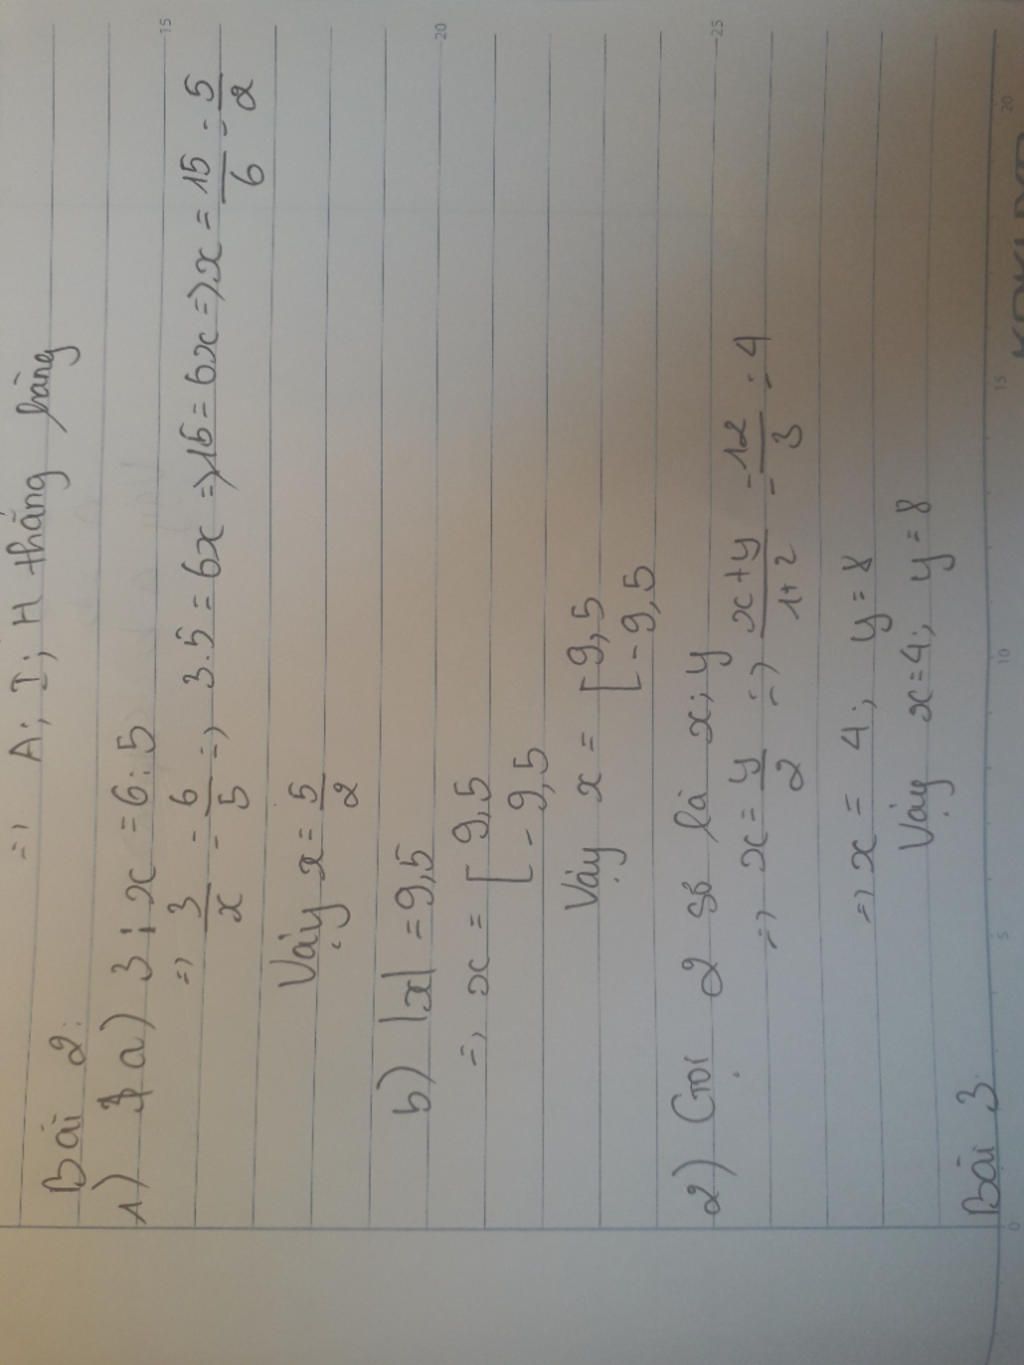 => A; I; H thẳng hàng
Bài 2:
1) a) 3 : x = 6 : 5
=> 3/x = 6/5 => 3.5 = 6x => 15 = 6x => x = 15/6 = 5/2
Vậy x = 5/2
b) |x| = 9,5
=> x = [ 9,5
[ - 9,5
Vậy x = [ 9,5
[ - 9,5
2) Gọi 2 số là x; y
=> x = y/2 => x+y/1+2 = 12/3 = 4
=> x = 4; y = 8
Vậy x = 4; y = 8
Bài 3:
15 20 25
0 5 10 15 20